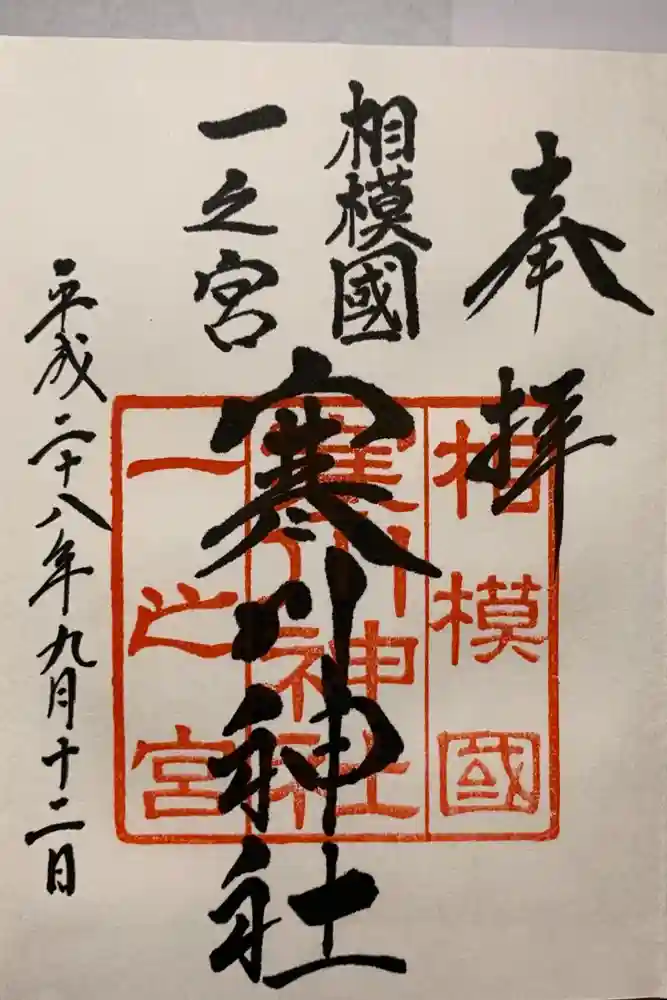 奉拝
相模國
一之宮
寒川神社
平成二十八年九月十二日
相模國
寒川神社
一之宮